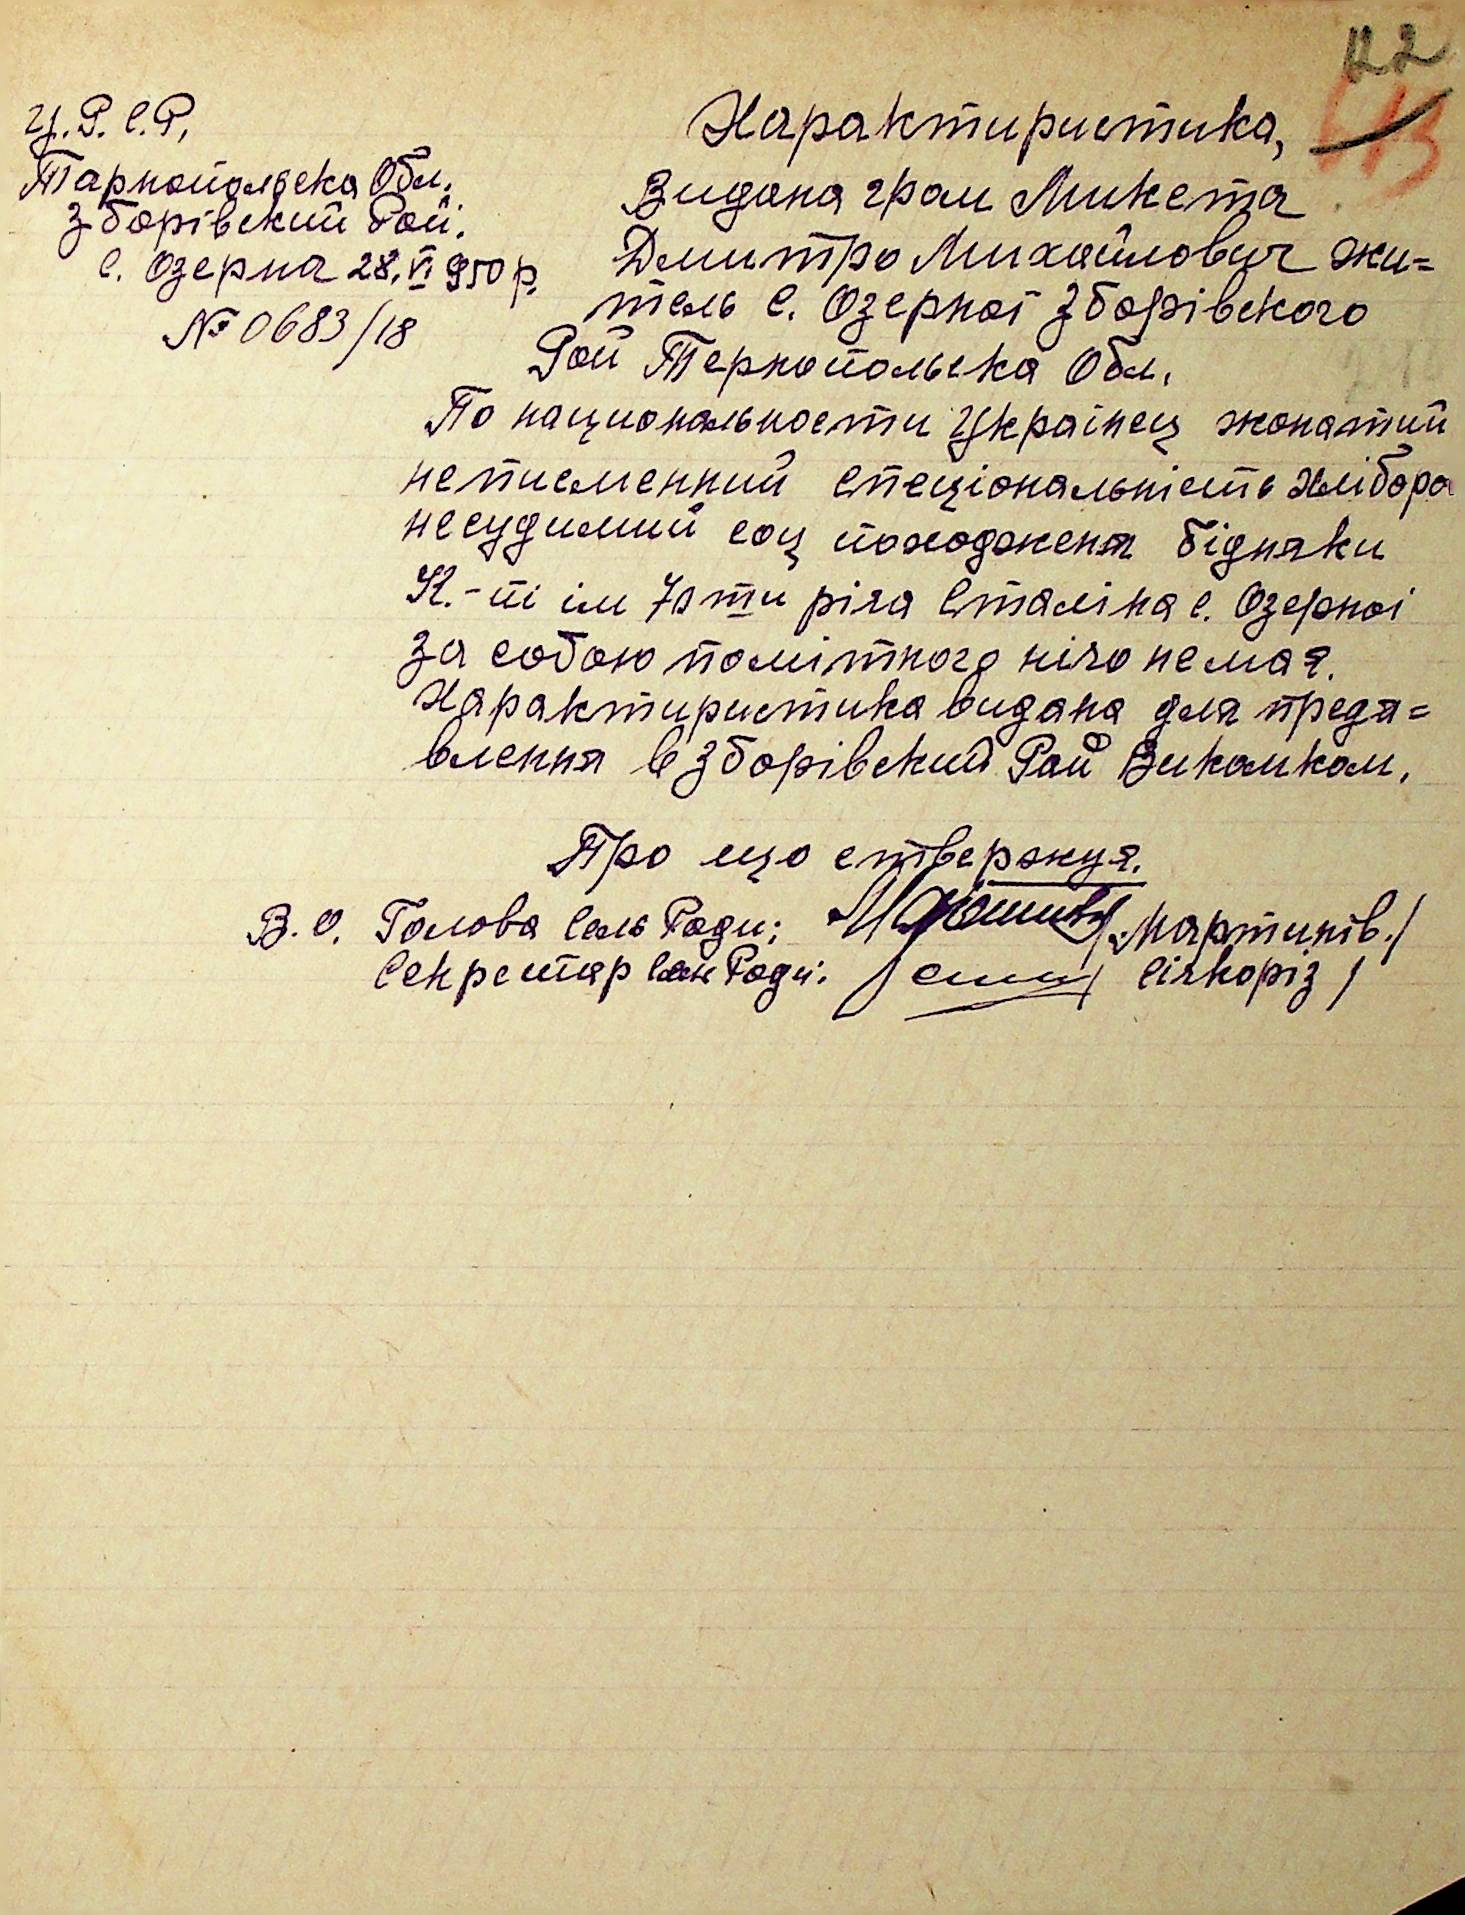 У.Р.С.Р,
Тарнопольска Обл.
Зборівский Рай.
с. Озерна 28.VI 950 р.
№ 0683/18
122
113
Характиристика,
Видана гром Микета
Дмитро Михайлович жи=
тель с. Озерної Зборівского
Рай Тернопольска Обл.
По национальности Українец жонатий
неписменний специональність хлібора
несудимий соц походженя бідняки
К.-пі ім 70ти річа Сталіна с. Озерної
За собою помітного нічо немає.
Характиристика видана для предя=
влення в Зборівский Рай Викомком.
Про що ствержує.
В.О. Голова Сель Ради: /Мартинів./
Секретар Сель Ради: / Сіякоріз /